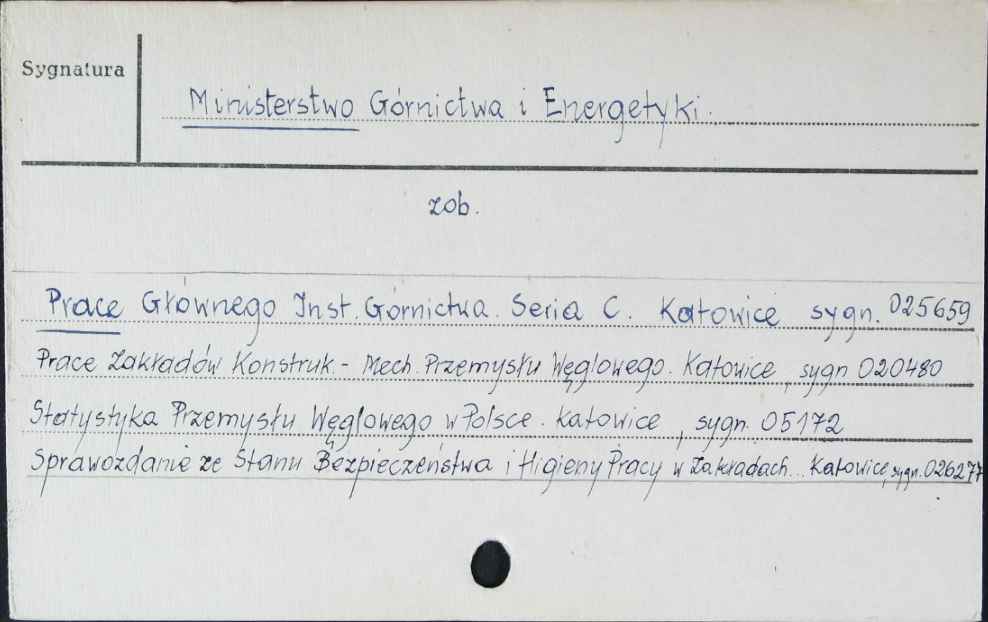 Sygnatura
Ministerstwo Górnictwa i Energetyki.
zob.
Prace Głównego Inst. Górnictwa. Seria C. Katowice sygn. 025659
Prace Zakładów Konstruk.- Mech. Przemysłu Węglowego. Katowice, sygn 020480
Statystyka Przemysłu Węglowego w Polsce. Katowice, sygn. 05172
Sprawozdanie ze Stanu Bezpieczeństwa i Higieny Pracy w Zakładach... Katowice, sygn. 026277